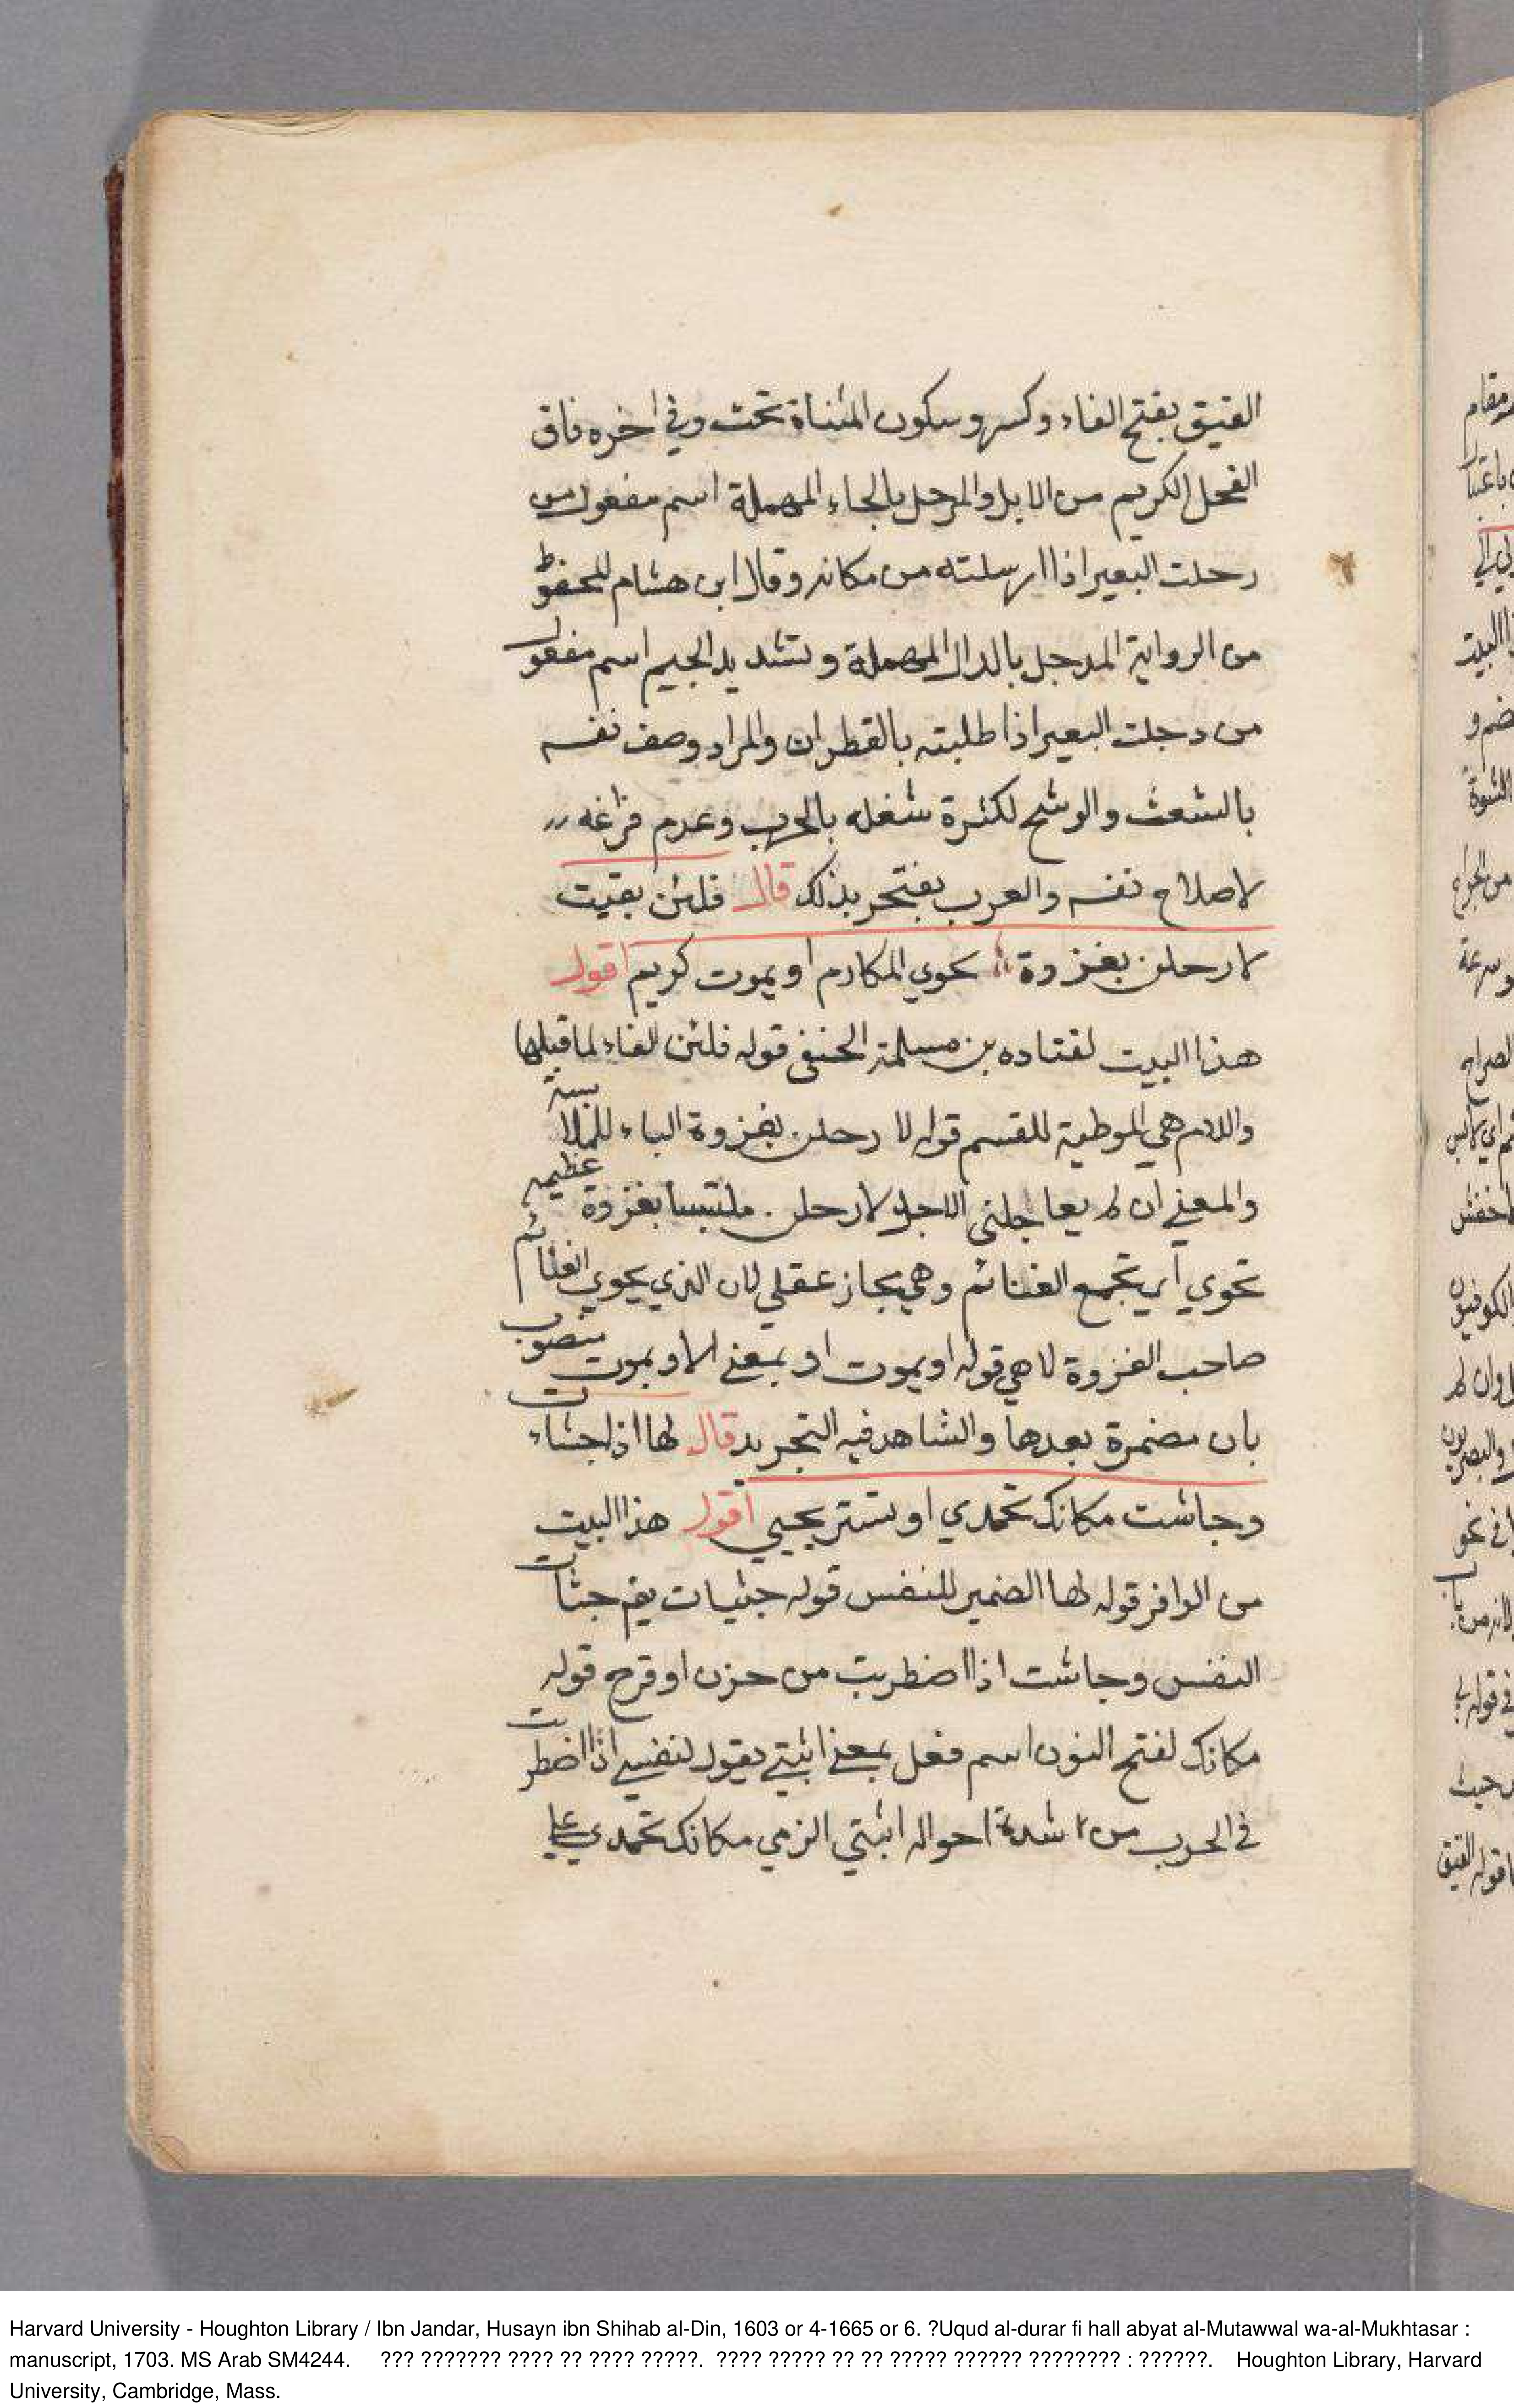 الفنيق بفتح الفاء وكسر وسكون المثناة تحت وفي اخره فاق
الفحل الكريم من الابل والمرحل بالحاء المهملة اسم مفعول من
رحلت البعير اذا ارسلته من مكانه وقال ابن هشام المحفوظ
من الرواية المدجل بالدال المهملة وتشديد الجيم اسم مفعول
من دجلت البعير اذا طلبته بالقطران والمراد وصف نفسه
بالشعث والوشح لكثرة شغله بالحرب وعدم فراغه
لاصلاح نفسه والعرب يفتخر بذلك قال فلئن بقيت
لارحلن بغزوة تحوي المكارم او يموت كريم اقول
هذا البيت لقتاده بن مسلمة الحنفي قوله فلئن الفاء لما قبلها
واللام هي الموطية للقسم قوله لا رحلن بغزوة الباء للملابسة
والمعنى ان لم يعاجلني الاجل لارحلن ملتبسا بغزوة عظيمه
تحوي أي تجمع الغنائم وهي مجاز عقلي لان الذي يحوي الغنائم
صاحب الغزوة لا هي قوله او يموت او بمعنى الا ويموت منصوب
بان مضمرة بعدها والشاهد فيه التجريد قال لها اذا جشاءت
وجاشت مكانك تحمدي او تستريحيي اقول هذا البيت
من الوافر قوله لها الضمير للنفس قوله جئيات يقم جثات
النفس وجاشت اذا اضطربت من حزن او قرح قوله
مكانك لفتح النون اسم فعل بمعنى اثبتي يقول لنفسي اذا اضطربت
في الحرب من شدة احواله اثبتي الزمي مكانك تحمدي علي
مقام
البيت
من
وسرعة
الكوفيون
والبصريون
في قوله
حيث
قوله الفنيق
Harvard University - Houghton Library / Ibn Jandar, Husayn ibn Shihab al-Din, 1603 or 4-1665 or 6. ?Uqud al-durar fi hall abyat al-Mutawwal wa-al-Mukhtasar :
manuscript, 1703. MS Arab SM4244. ??? ??????? ???? ?? ???? ?????. ???? ????? ?? ?? ????? ?????? ???????? : ??????. Houghton Library, Harvard
University, Cambridge, Mass.